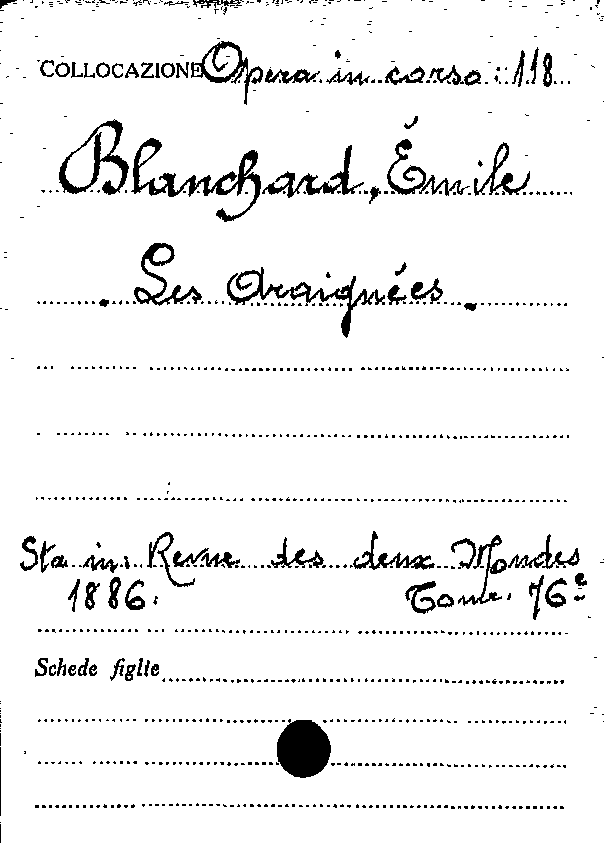 COLLOCAZIONE Opera in corso: 118
Blanchard, Émile
. Les Araignées.
Sta in: Revue des deux Mondes
1886. Tome. 76e
Schede figlie